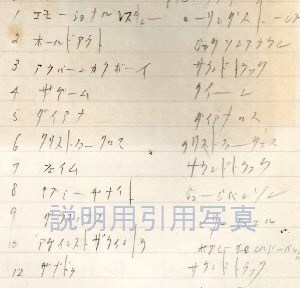 1 エモーショナルレスキュー ローリングストーンズ
2 ホールドアウト ジャクソンブラウン
3 アーバンカウボーイ サウンドトラック
4 ザゲーム クイーン
5 ダイアナ ダイアナロス
6 クリストファークロス クリストファークロス
7 フェイム サウンドトラック
8 ギブミーザナイト ジョージベンソン
9
10 アゲインストザウインド
12 ザナドゥ サウンドトラック
説明用引用写真